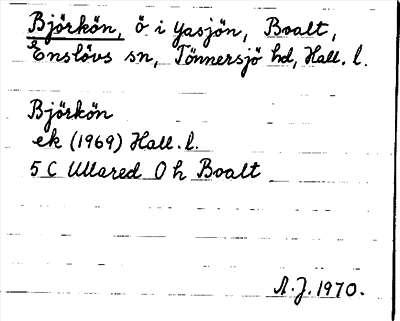 Björkön, ö i Yasjön, Boalt,
Enslövs sn, Tönnersjö hd, Hall. l.
Björkön
ek (1969) Hall. l.
5 C Ullared 0 h Boalt
A.J. 1970.